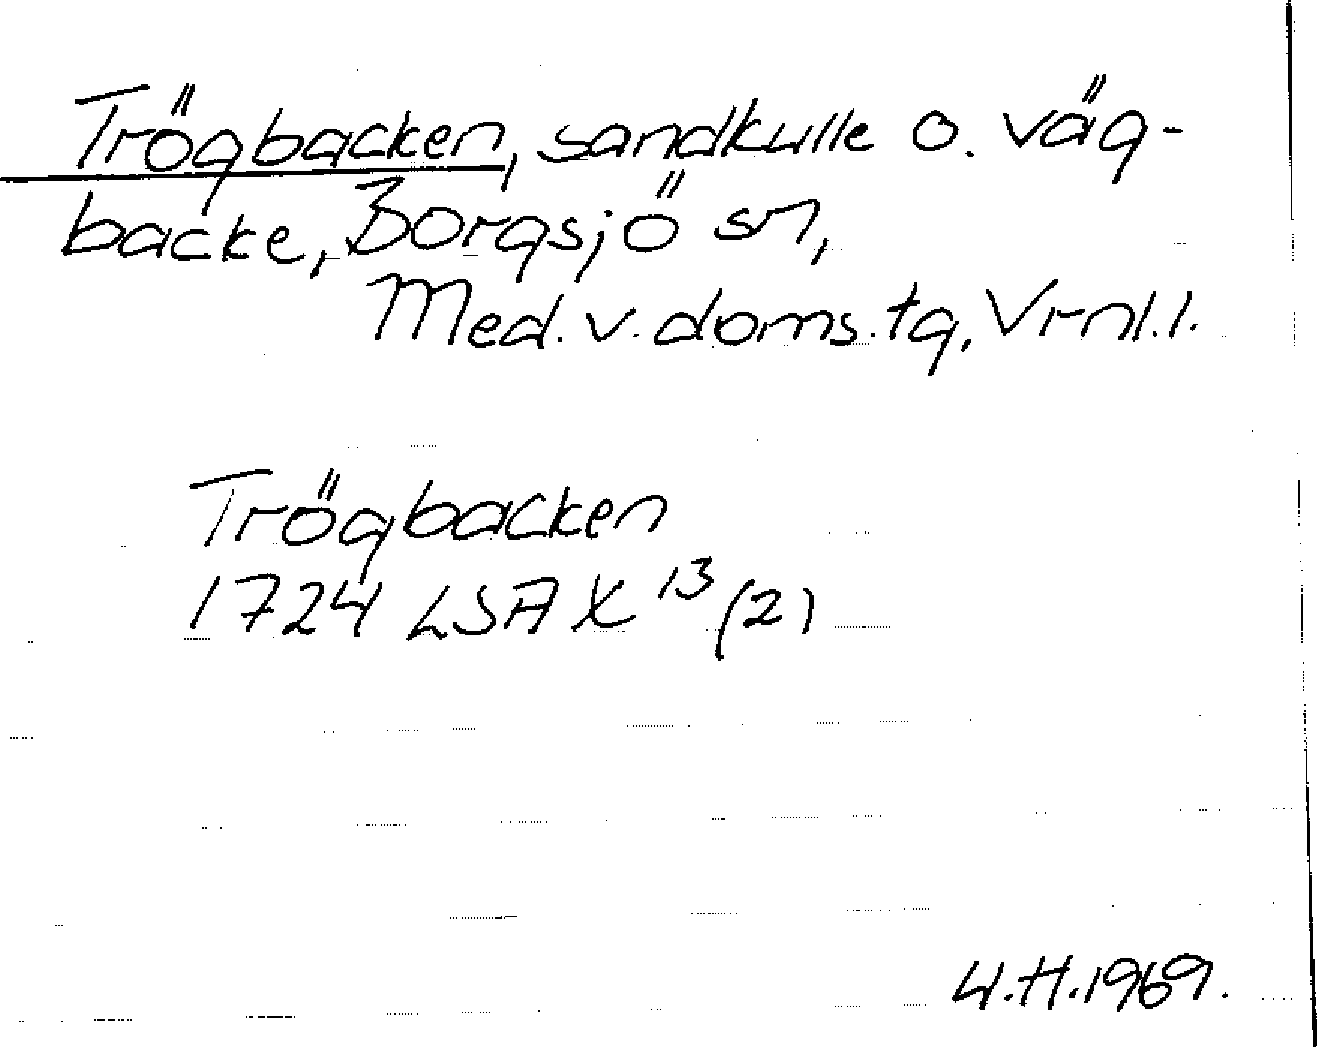 Trögbacken, sandkulle o. väg-
backe, Borgsjö sn,
Med. v. doms. tg, Vrnl. l.
Trögbacken
1724 LSA X 13 (2)
4.H.1969.